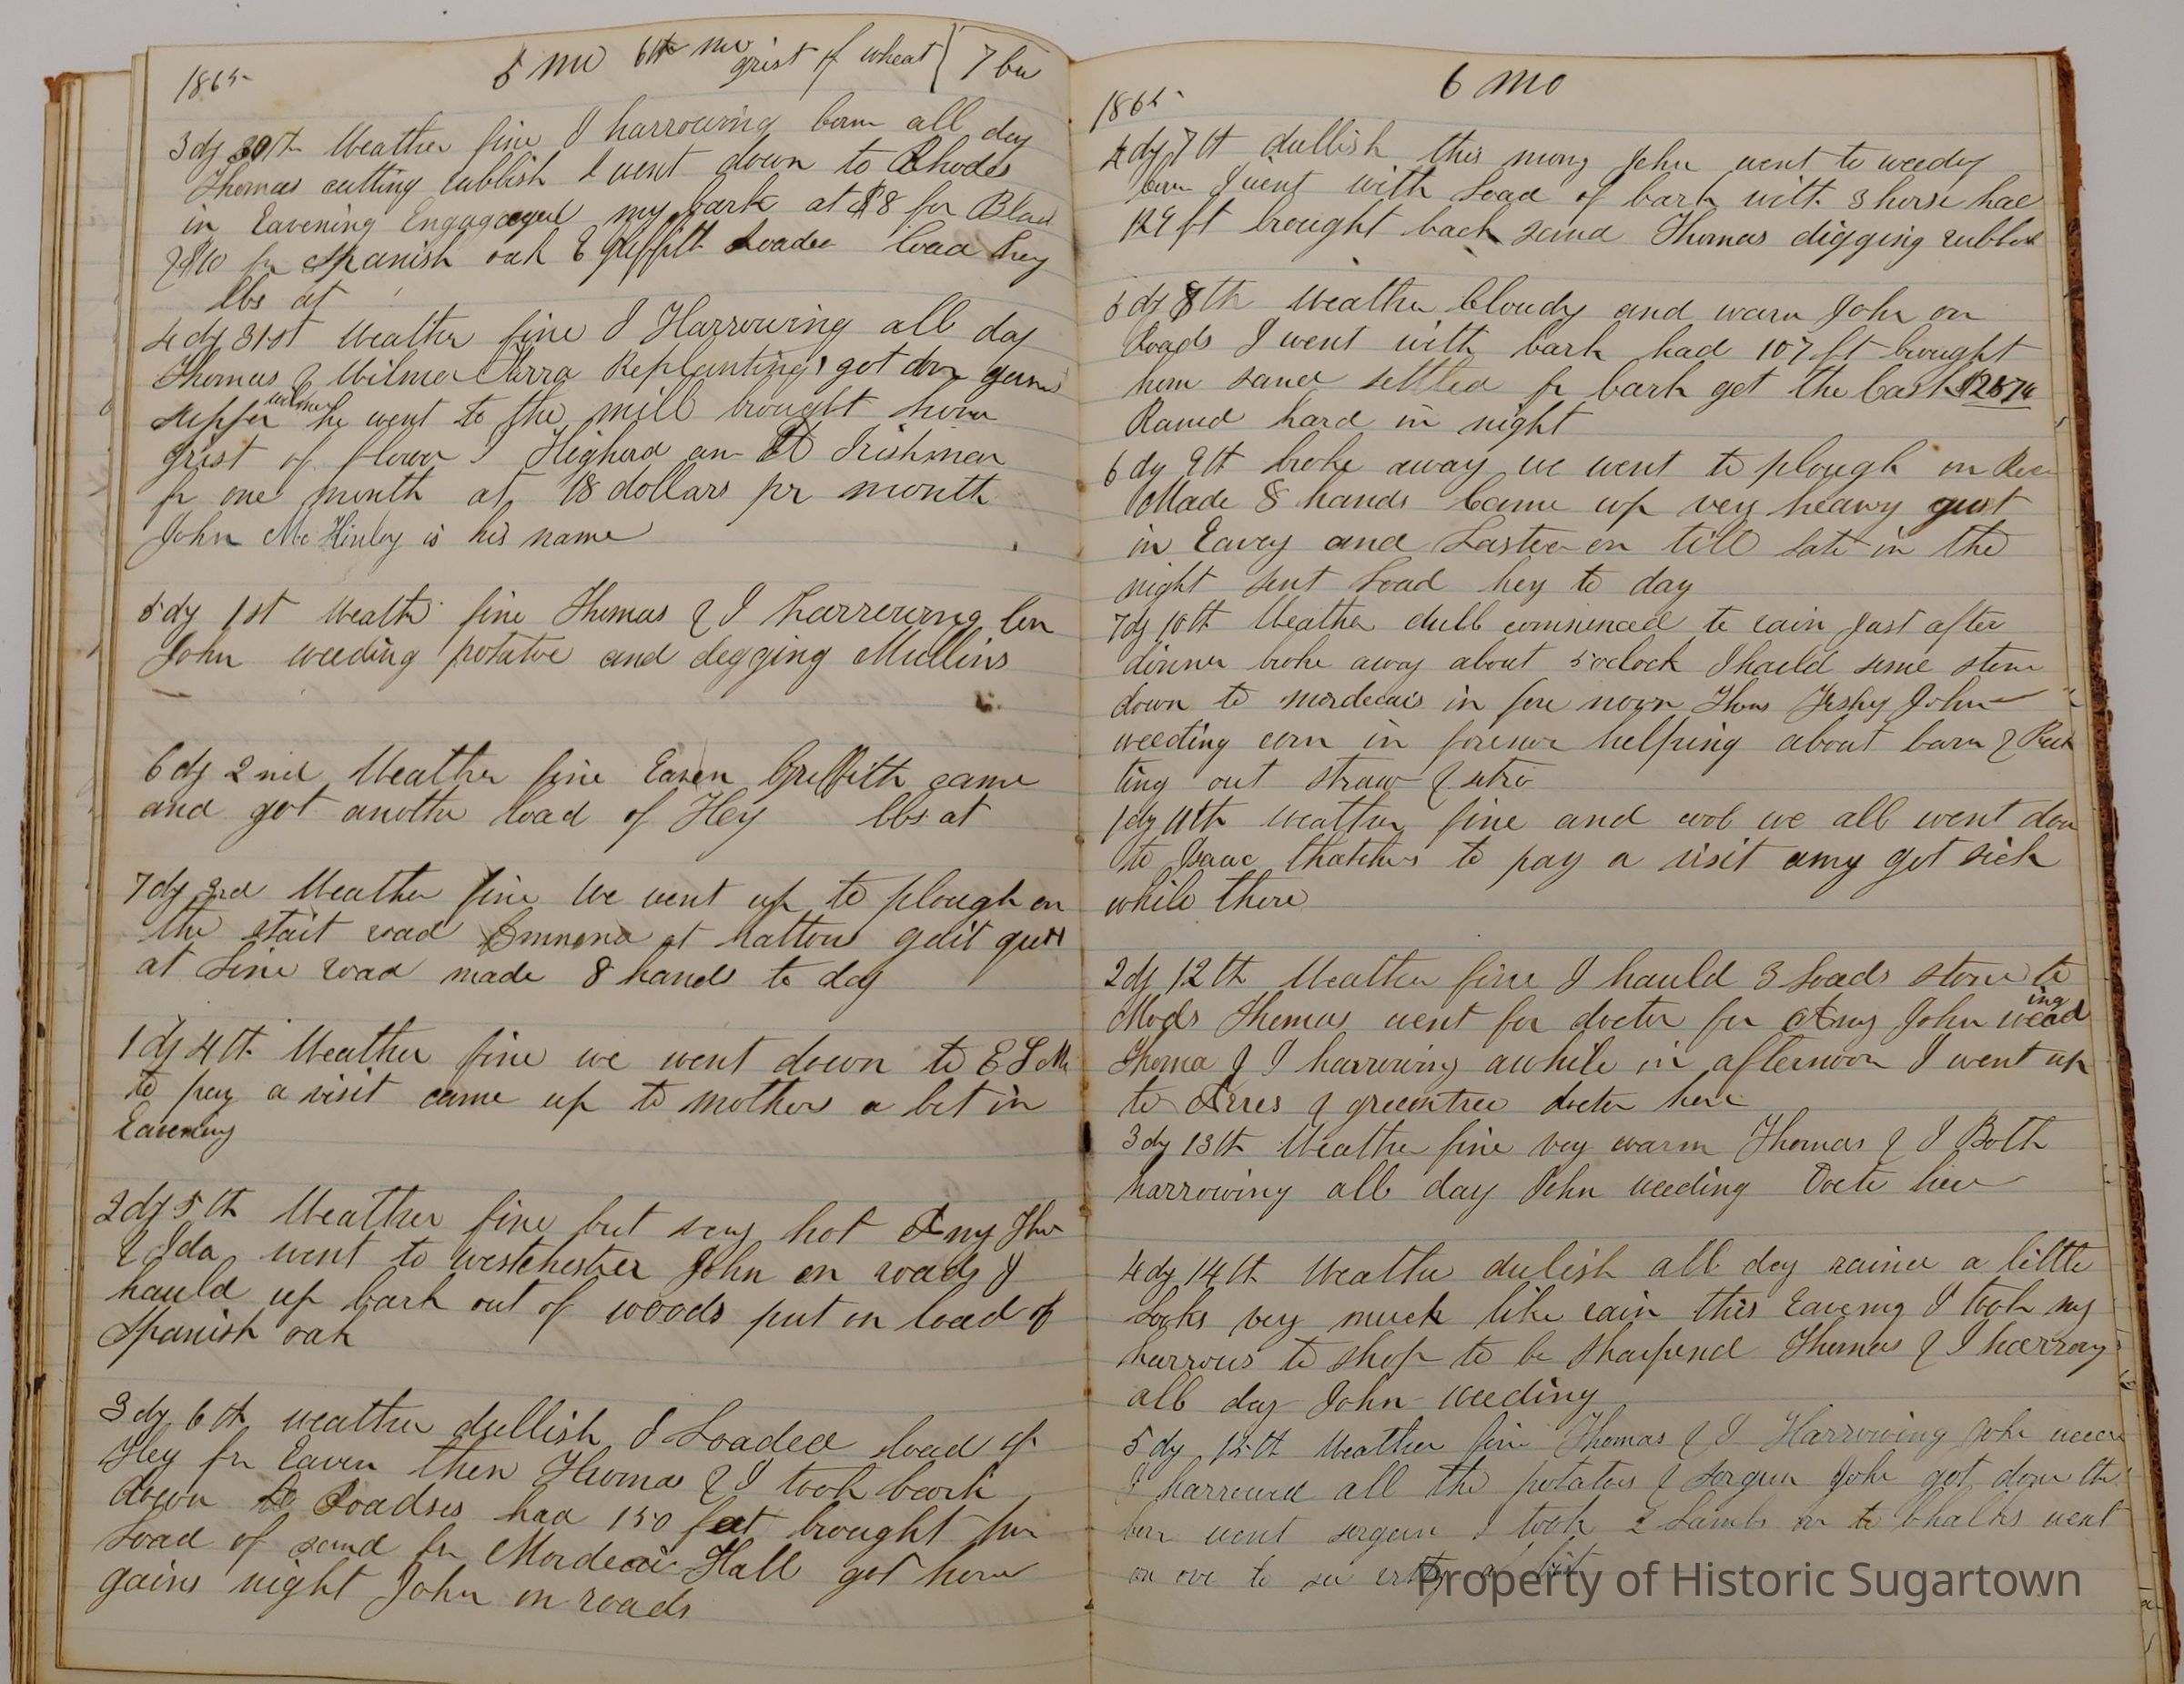 1865
5 mo 6th mo grist of wheat 7 bu
3 dy 30th Weather fine I harrowing corn all day
Thomas cutting rubbish I went down to Rhodes
in Eavening my bark at $8 for Black
& $10 for Spanish oak E Griffith Loaded load hey
lbs at
4 dy 31st Weather fine I Harrowing all day
Thomas & Wilmer Replanting got done gains
supper wilmer he went to the mill brought home
grist of flower I Higherd an Irishman
for one month at 18 dollars pr month
John McKinley is his name
5 dy 1st Weath fine Thomas & I harrowing corn
John weeding potatoe and degging Mullins
6 dy 2nd Weather fine Eaven Griffith came
and got another load of Hey lbs at
7 dy 3rd Weather fine We went up to plough on
the stait road at hattons
at Line road made 8 hands to day
1 dy 4th Weather fine we went down to
to pay a visit came up to mothers a bet in
Eavening
2 dy 5th Weather fine but very hot Amy Tho
& Ida went to westchester John on roads I
hauld up bark out of woods put on load of
Spanish oak
3 dy 6th weather dullish I Loaded load of
Hey for Eaven then Thomas & I took bark
down to Roadses had 150 feet brought
Load of sand for Mordecai Hall got home
gains night John on roads
6 mo
1865
4 dy 7th dullish this morng John went to weedg
corn I went with Load of bark with 3 horse had
129 ft brought back sand Thomas digging rubbish
5 dy 8th Weather Cloudy and warm John on
Roads I went with bark had 107 ft brought
hom sand settled for bark got the Cash
Raned hard in night
6 dy 9th broke away we went to plough on
Made 8 hands Came up very heavy gust
in Eaveg and Lasted on till late in the
night sent Load hey to day
7 dy 10th Weather dull commenced to rain Just after
dinner broke away about 5 oclock I hauld some stone
down to mordecais in fore noon Thos John
weeding corn in forenoon helping about barn &
ting out straw &
1 dy 11th weather fine and cool we all went down
to Isaac thatchers to pay a visit amy got sick
while there
2 dy 12th Weather fine I hauld 3 Loads stone to
Mods Thomas went for docter for Amy John weading
Thomas & I harrowing awhile in afternoon I went up
to & greentree docter here
3 dy 13th Weather fine very warm Thomas & I Both
harrowing all day John weeding Docter here
4 dy 14th Weather dulish all day rained a little
Looks very much like rain this Eaveng I took my
harrows to shop to be sharpend Thomas & I harrowg
all day John weeding
5 dy 15th Weather fine Thomas & I Harrowing John
I harrowed all the potatoes & sorgun John got done the
corn went sorgun I took 2 Lambs on to went
on ove to see a bit
Property of Historic Sugartown